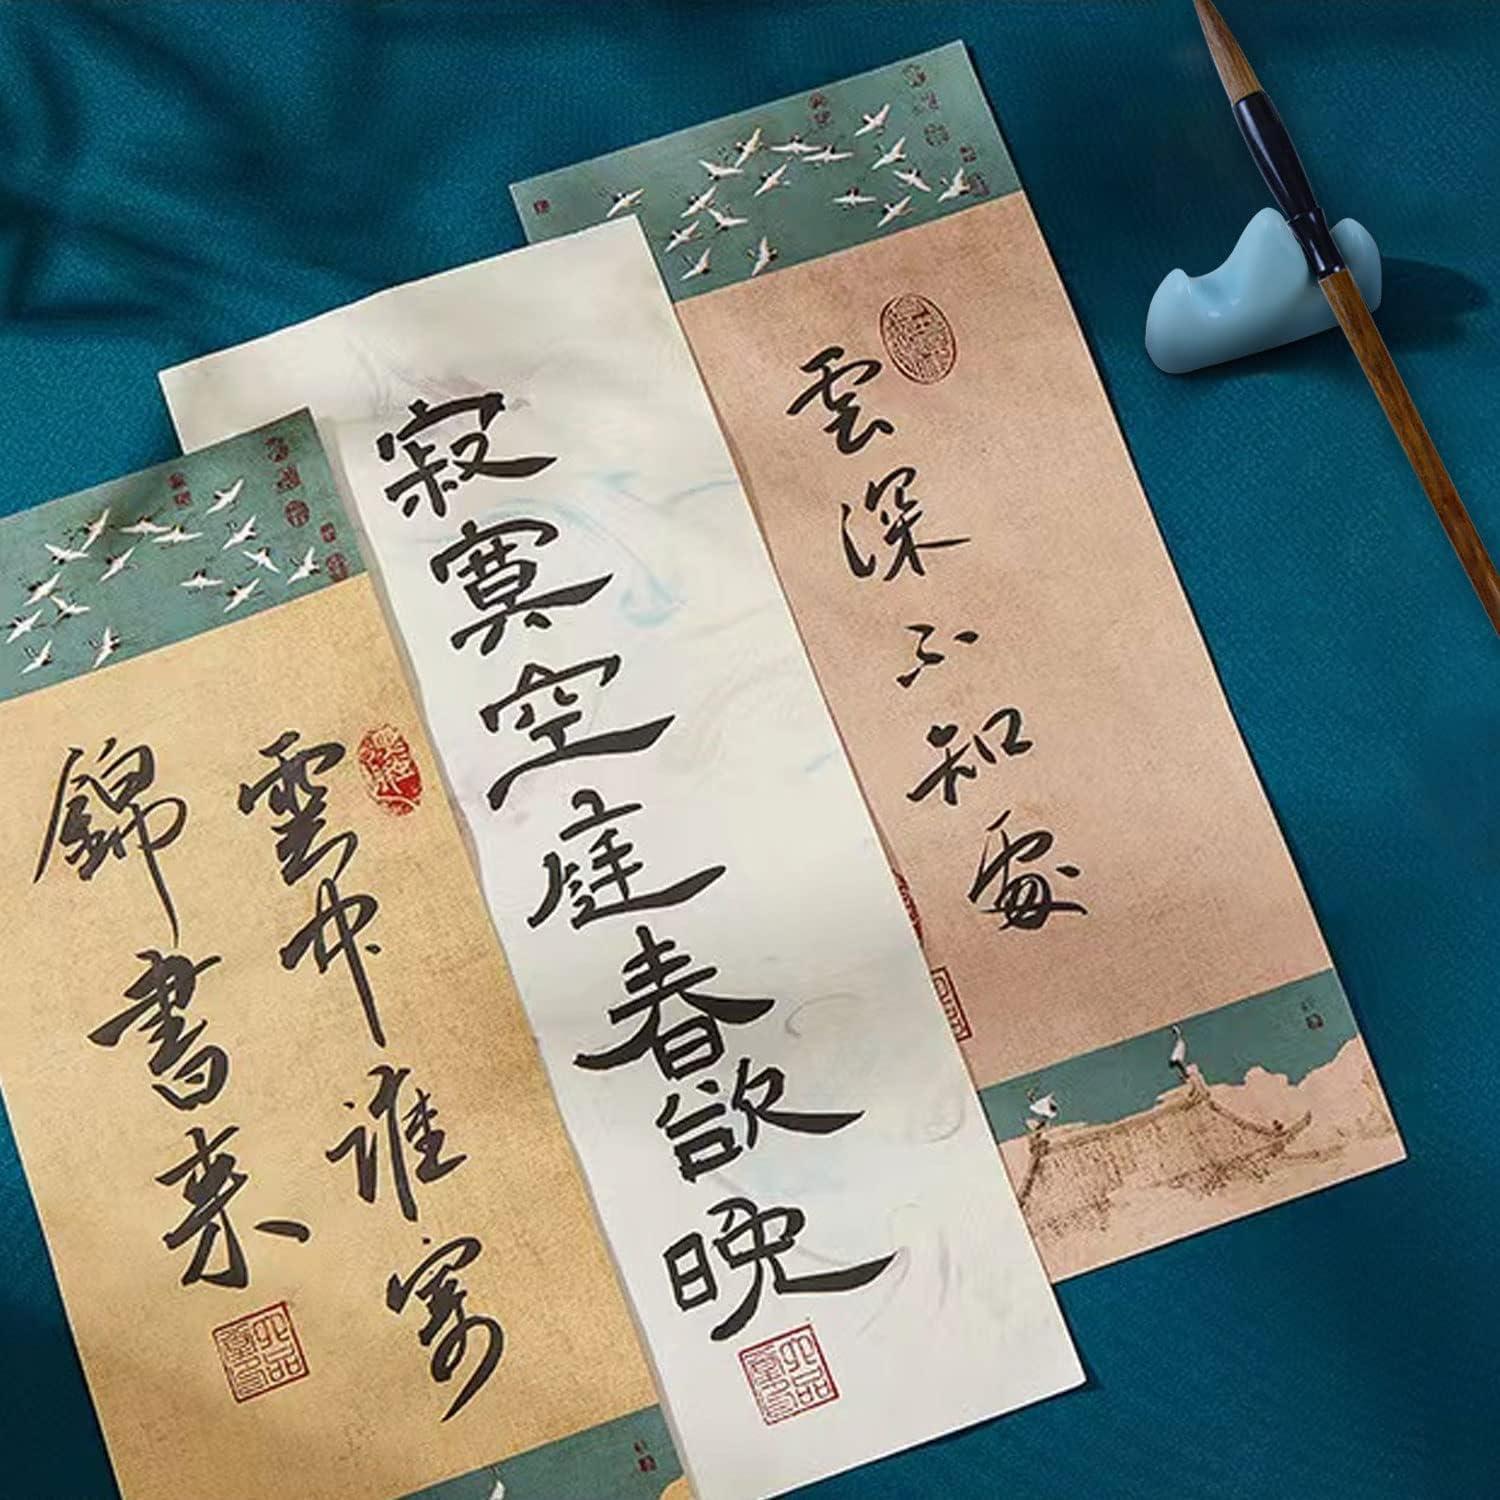 雲深不知處
寂寞空庭春欲晚
雲中誰寄
錦書来